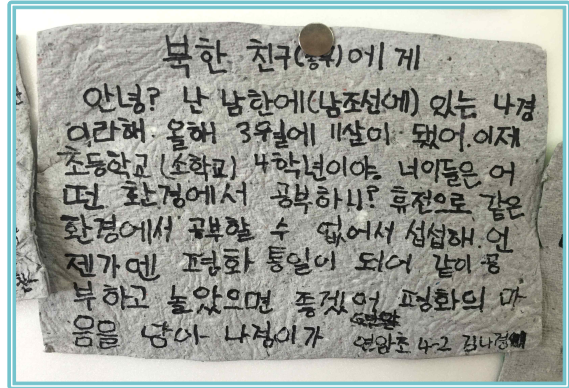 북한 친구(동무)에게
안녕? 난 남한에(남조선에) 있는 나경
이라해. 올해 3월에 11살이 됐어. 이제
초등학교(소학교) 4학년이야. 너이들은 어
떤 환경에서 공부하니? 휴전으로 같은
환경에서 공부할 수 없어서 섭섭해. 언
젠가엔 평화 통일이 되어 같이 공
부하고 놀았으면 좋겠어 평화의 마
음을 담아 나경이가
연암초 4-2 김나경